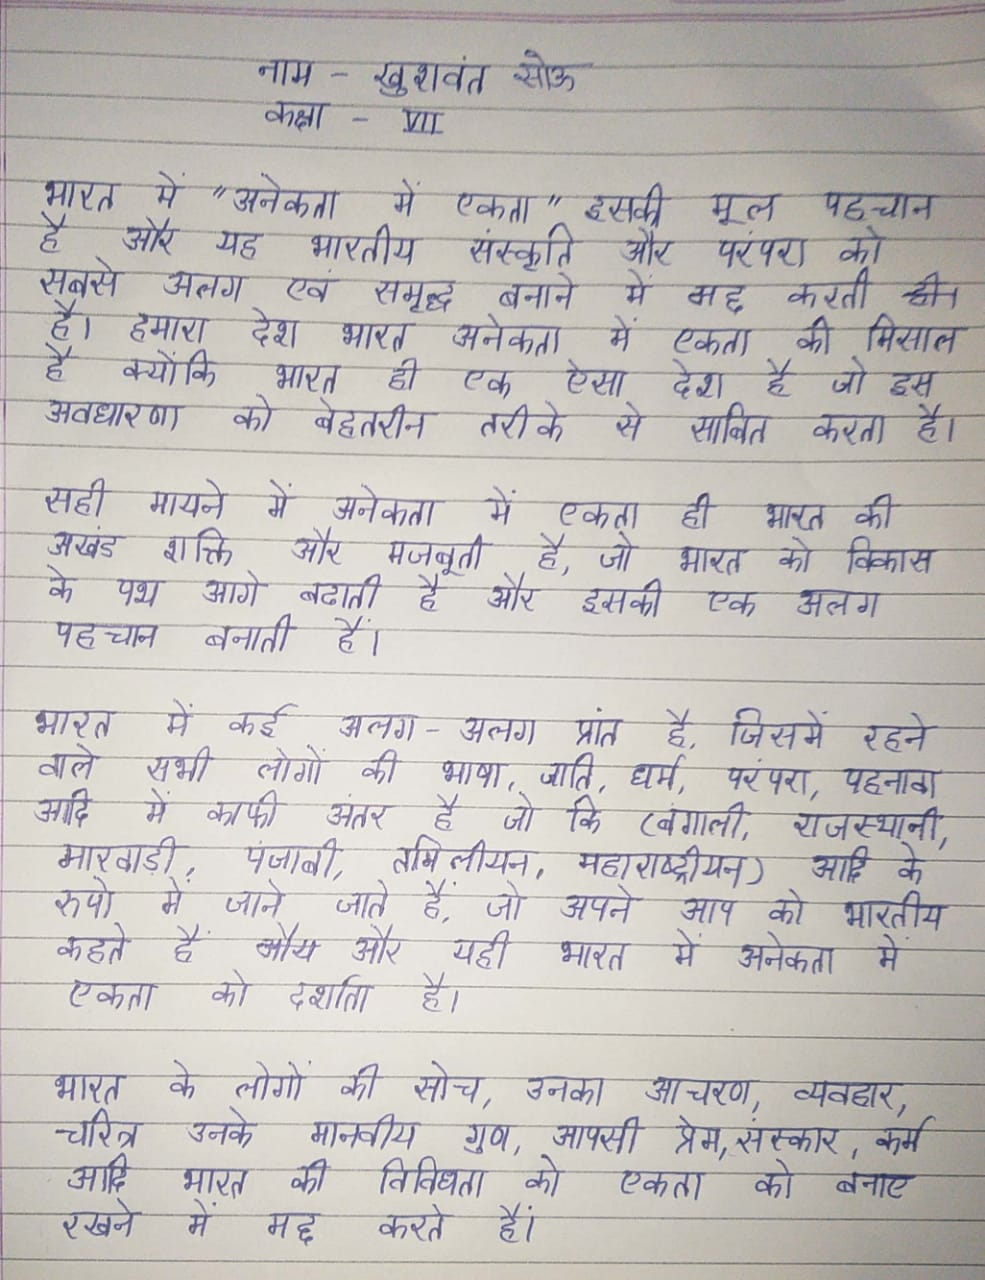 नाम - खुशवंत सोऊ
कक्षा - VII
भारत में "अनेकता में एकता" इसकी मूल पहचान
है और यह भारतीय संस्कृति और परंपरा को
सबसे अलग एवं समृद्ध बनाने में मद्द करती
है। हमारा देश भारत अनेकता में एकता की मिसाल
है क्योंकि भारत ही एक ऐसा देश है जो इस
अवधारणा को बेहतरीन तरीके से साबित करता है।
सही मायने में अनेकता में एकता ही भारत की
अखंड शक्ति और मजबूती है, जो भारत को विकास
के पथ आगे बढाती है और इसकी एक अलग
पहचान बनाती हैं।
भारत में कई अलग-अलग प्रांत है, जिसमें रहने
वाले सभी लोगों की भाषा, जाति, धर्म, परंपरा, पहनावा
आदि में काफी अंतर है जो कि (बंगाली, राजस्थानी,
मारवाड़ी, पंजाबी, तमिलीयन, महाराष्ट्रीयन) आदि के
रुपो में जाने जाते हैं, जो अपने आप को भारतीय
कहते हैं और यही भारत में अनेकता में
एकता को दर्शाता है।
भारत के लोगों की सोच, उनका आचरण, व्यवहार,
चरित्र उनके मानवीय गुण, आपसी प्रेम, संस्कार, कर्म
आदि भारत की विविधता को एकता को बनाए
रखने में मद्द करते हैं।